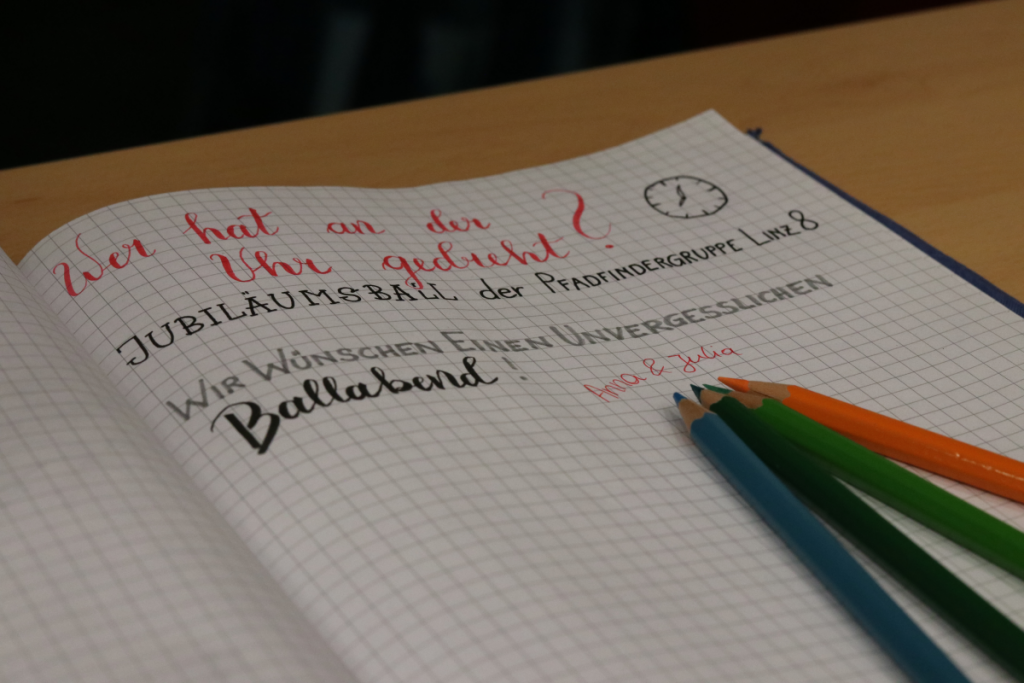 Wer hat an der
Uhr gedreht?
JUBILÄUMSBALL der PFADFINDERGRUPPE LINZ 8
WIR WÜNSCHEN EINEN UNVERGESSLICHEN
Ballabend!
Anna & Julia